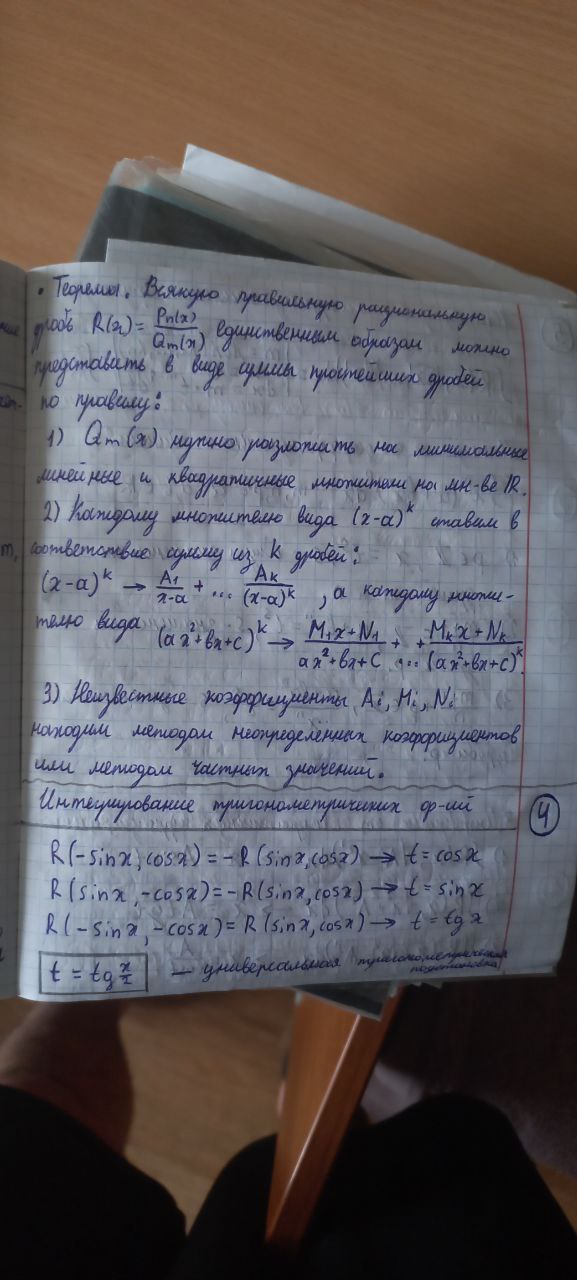 • Теорема. Всякую правильную рациональную
дробь R(x) = Pn(x)/Qm(x) единственным образом можно
представить в виде суммы простейших дробей
по правилу:
1) Qm(x) нужно разложить на минимальные
линейные и квадратичные множители на мн-ве IR.
2) Каждому множителю вида (x-a)^k ставим в
соответствие сумму из k дробей:
(x-a)^k → A1/(x-a) + ... Ak/(x-a)^k, а каждому множи-
телю вида (ax²+bx+c)^k → (M1x+N1)/(ax²+bx+c) + ... + (Mkx+Nk)/(ax²+bx+c)^k.
3) Неизвестные коэффициенты Ai, Mi, Ni
находим методом неопределённых коэффициентов
или методом частных значений.
Интегрирование тригонометрических ф-ий
4
R(-sinx, cosx) = -R(sinx, cosx) → t = cosx
R(sinx, -cosx) = -R(sinx, cosx) → t = sinx
R(-sinx, -cosx) = R(sinx, cosx) → t = tg x
t = tg x/2 — универсальная тригонометрическая
подстановка